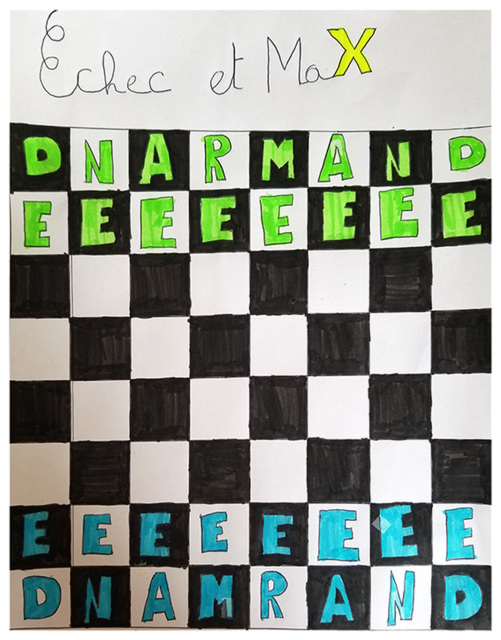 Échec et MaX
DNARMAND
EEEEEEEE
EEEEEEEE
DNAMRAND